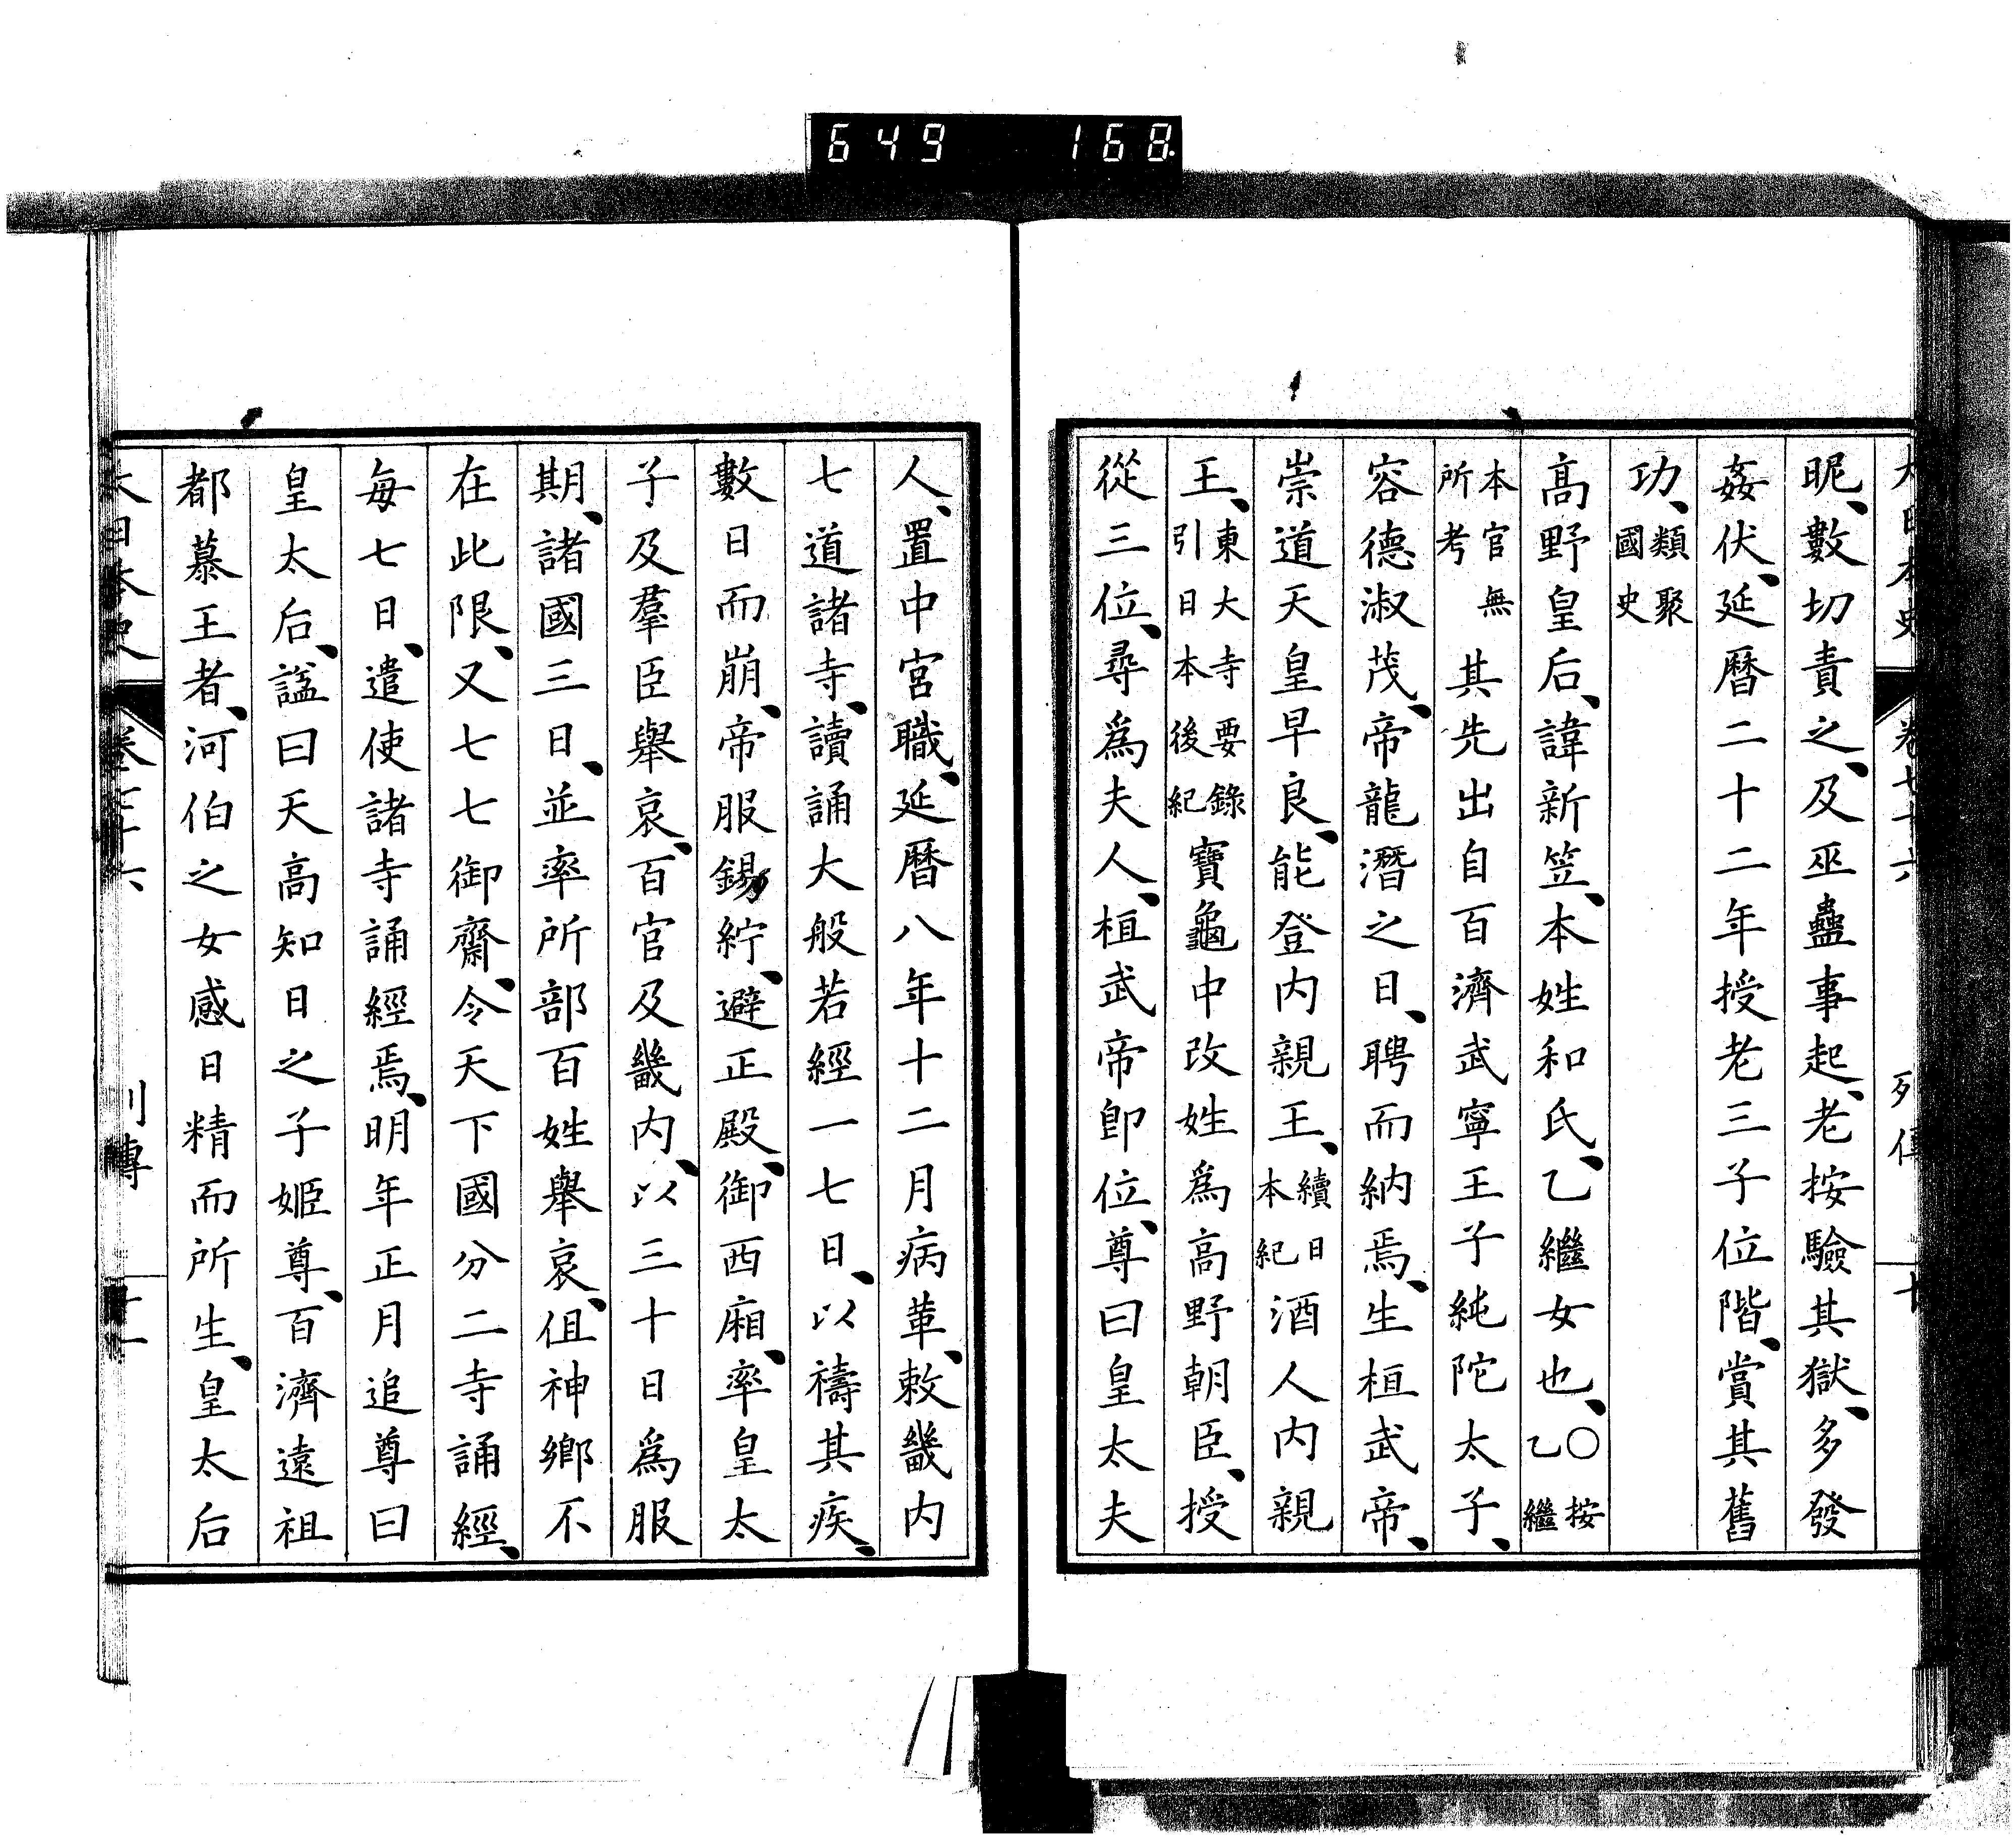 649 168
大日本史 卷七十六 列傳 十
昵、數切責之、及巫蠱事起、老按驗其獄、多發
姦伏、延曆二十二年授老三子位階、賞其舊
功、類聚國史
高野皇后、諱新笠、本姓和氏、乙繼女也、○按乙繼
本官無所考其先出自百濟武寧王子純陀太子、
容德淑茂、帝龍潛之日、聘而納焉、生桓武帝、
崇道天皇早良、能登內親王、續日本紀酒人內親
王、東大寺要錄引日本後紀寶龜中改姓爲高野朝臣、授
從三位、尋爲夫人、桓武帝卽位、尊曰皇太夫
人、置中宮職、延曆八年十二月病革、敕畿內
七道諸寺、讀誦大般若經一七日、以禱其疾、
數日而崩、帝服錫紵、避正殿、御西廂、率皇太
子及羣臣舉哀、百官及畿內、以三十日爲服
期、諸國三日、並率所部百姓舉哀、但神鄉不
在此限、又七七御齋、令天下國分二寺誦經、
每七日、遣使諸寺誦經焉、明年正月追尊曰
皇太后、謚曰天高知日之子姬尊、百濟遠祖
都慕王者、河伯之女感日精而所生、皇太后
大日本史 卷七十六 列傳 十一